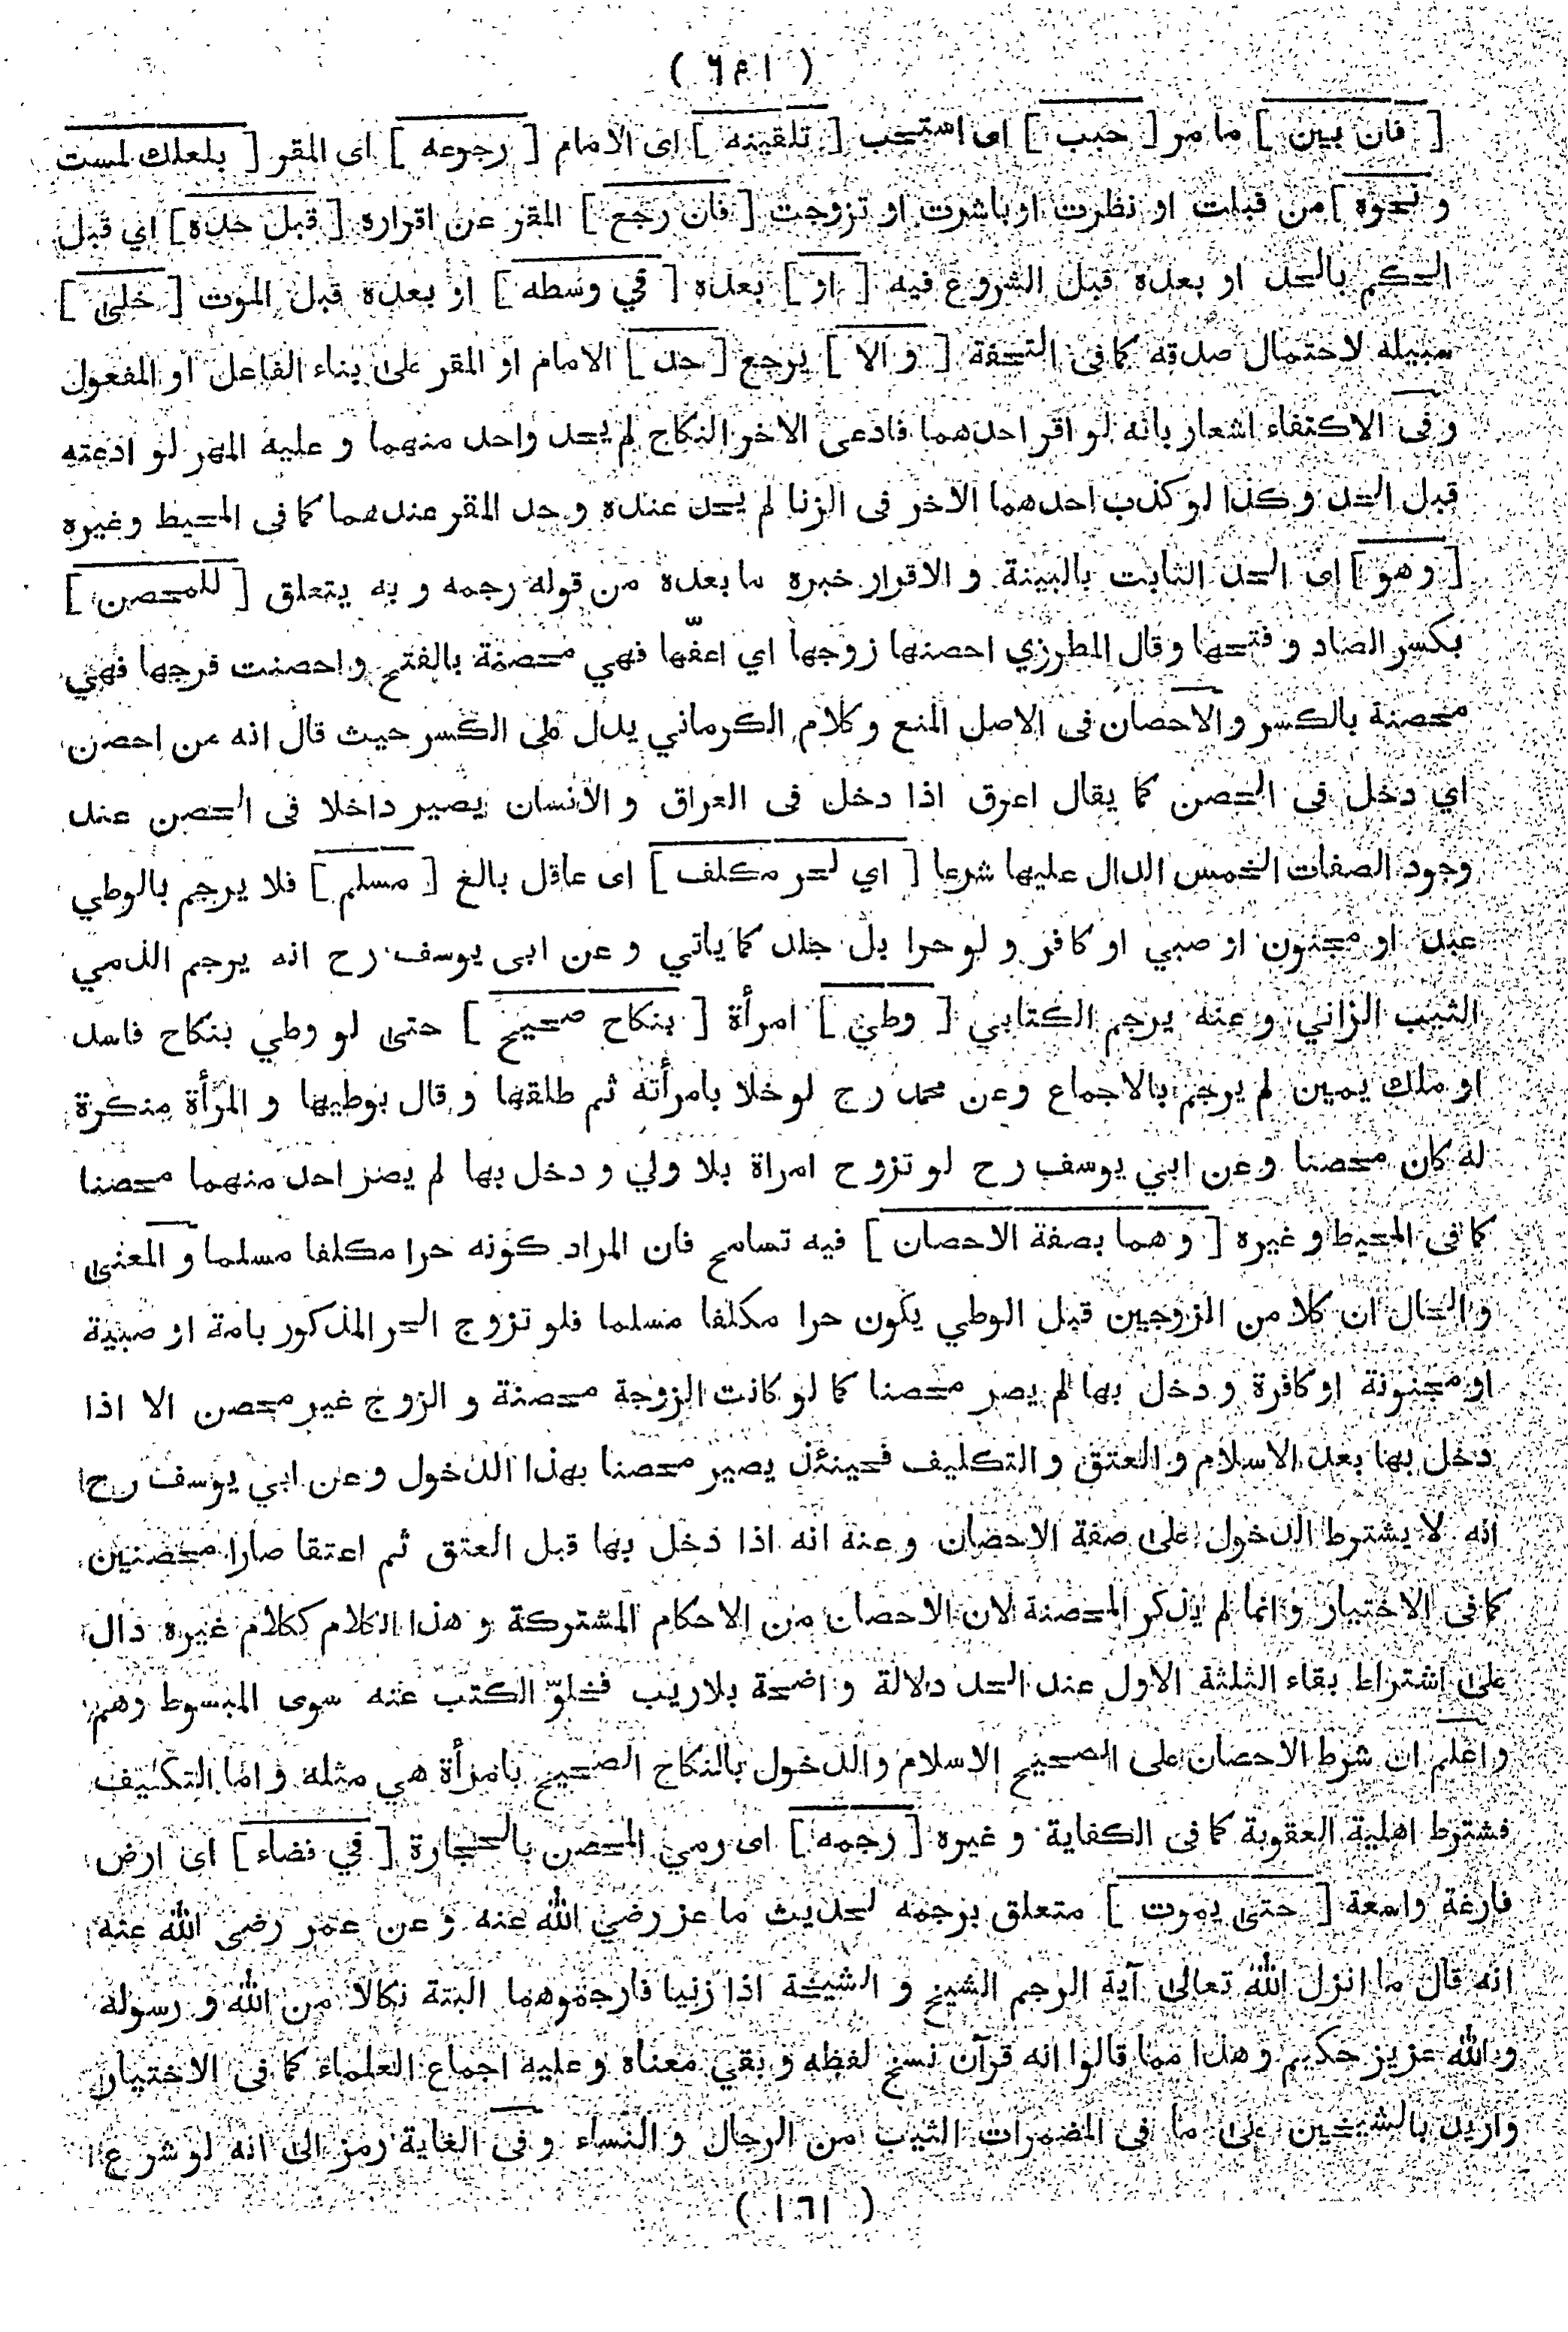 [ فان بين ] ما مر [ حبب ] اى استحب [ تلقينه ] اى الامام [ رجوعه ] اى المقر [ بلعلك لمست
و نحوه ] من قبلت او نظرت او باشرت او تزوجت [ فان رجع ] المقر عن اقراره [ قبل حده ] اي قبل
الحكم بالحد او بعده قبل الشروع فيه [ او ] بعده [ في وسطه ] او بعده قبل الموت [ خلى ]
سبيله لاحتمال صدقه كما فى التحفة [ و الا ] يرجع [ حد ] الامام او المقر على بناء الفاعل او المفعول
و فى الاكتفاء اشعار بانه لو اقر احدهما فادعى الاخر النكاح لم يحد واحد منهما و عليه المهر لو ادعته
قبل الحد و كذا لو كذب احدهما الاخر فى الزنا لم يحد عنده و حد المقر عندهما كما فى المحيط وغيره
[ و هو ] اى الحد الثابت بالبينة و الاقرار خبره ما بعده من قوله رجمه و به يتعلق [ للمحصن ]
بكسر الصاد و فتحها وقال المطرزي احصنها زوجها اي اعفّها فهي محصنة بالفتح واحصنت فرجها فهي
محصنة بالكسر و الاحصان فى الاصل المنع و كلام الكرماني يدل على الكسر حيث قال انه من احصن
اي دخل فى الحصن كما يقال اعرق اذا دخل فى العراق و الانسان يصير داخلا فى الحصن عند
وجود الصفات الخمس الدال عليها شرعا [ اي لحر مكلف ] اى عاقل بالغ [ مسلم ] فلا يرجم بالوطي
عبد او مجنون او صبي او كافر و لو حرا بل جلد كما ياتي و عن ابى يوسف رح انه يرجم الذمي
الثيب الزاني و عنه يرجم الكتابي [ وطي ] امرأة [ بنكاح صحيح ] حتى لو وطي بنكاح فاسد
او ملك يمين لم يرجم بالاجماع وعن محمد رح لو خلا بامرأته ثم طلقها و قال بوطيها و المرأة منكرة
له كان محصنا و عن ابي يوسف رح لو تزوج امراة بلا ولي و دخل بها لم يصر احد منهما محصنا
كما فى المحيط و غيره [ و هما بصفة الاحصان ] فيه تسامح فان المراد كونه حرا مكلفا مسلما و المعنى
و الحال ان كلا من الزوجين قبل الوطي يكون حرا مكلفا مسلما فلو تزوج الحر المذكور بامة او صبية
او مجنونة او كافرة و دخل بها لم يصر محصنا كما لو كانت الزوجة محصنة و الزوج غير محصن الا اذا
دخل بها بعد الاسلام و العتق و التكليف فحينئذ يصير محصنا بهذا الدخول و عن ابي يوسف رح
انه لا يشترط الدخول على صفة الاحصان و عنه انه اذا دخل بها قبل العتق ثم اعتقا صارا محصنين
كما فى الاختيار و انما لم يذكر المحصنة لان الاحصان من الاحكام المشتركة و هذا الكلام ككلام غيره دال
على اشتراط بقاء الثلثة الاول عند الحد دلالة واضحة بلا ريب فخلوّ الكتب عنه سوى المبسوط وهم
و اعلم ان شرط الاحصان على الصحيح الاسلام والدخول بالنكاح الصحيح بامرأة هي مثله و اما التكليف
فشرط اهلية العقوبة كما فى الكفاية و غيره [ رجمه ] اى رمي المحصن بالحجارة [ في فضاء ] اى ارض
فارغة واسعة [ حتى يموت ] متعلق برجمه لحديث ماعز رضي الله عنه و عن عمر رضى الله عنه
انه قال ما انزل الله تعالى آية الرجم الشيخ و الشيخة اذا زنيا فارجموهما البتة نكالا من الله و رسوله
و الله عزيز حكيم و هذا مما قالوا انه قرآن نسخ لفظه و بقي معناه و عليه اجماع العلماء كما فى الاختيار
واريد بالشيخين على ما فى المضمرات الثيب من الرجال و النساء و فى الغاية رمز الى انه لو شرع
( ١٦١ )